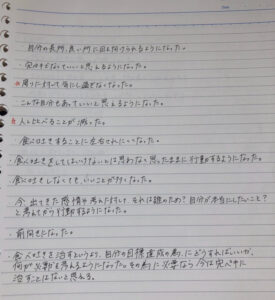 ・自分の長所、良い所に目を向けられるようになった。
・完ペキじゃなくていいと思えるようになった。
周りに対して気にし過ぎなくなった。
・こんな自分もあっていいと思えるようになった。
人と比べることが減った。
・食べ吐きをすることに左右されにくくなった。
・食べ吐きをしてはいけないとは思わなく思ったままに行動するようになった。
・食べ吐きをしなくても、いいことが多くなった。
・今出てきた感情を考えたりし、それは誰のため?自分が本当にしたいこと?
と考えてから行動するようになった。
・前向きになった。
・食べ吐きを治すというより、自分の目標達成の為にどうすればいいか、
何が必要かを考えるようになった。その為に必要なら今は完ペキに
治すことはないと思える。